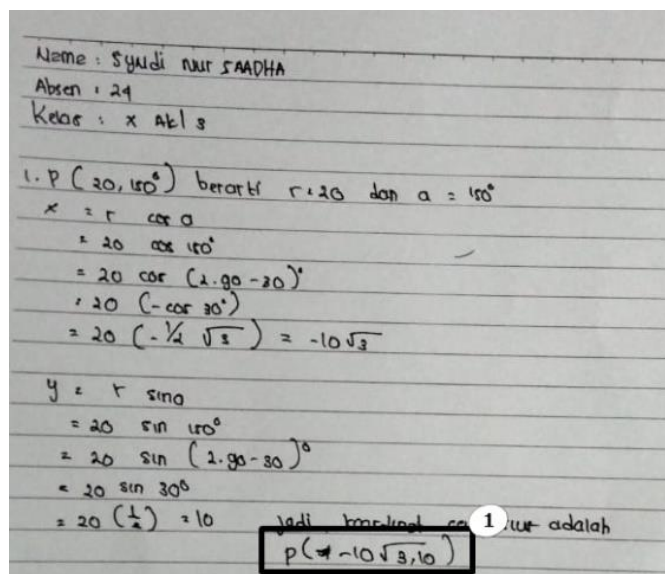 Name : Syndi nur SAADHA
Absen : 24
Kelas : X Akl 3
1. P ( 20, 150° ) berarti r = 20 dan a = 150°
x = r cos a
= 20 cos 150°
= 20 cos (2.90 - 30)°
= 20 (- cos 30°)
= 20 (- ½ √3 ) = -10√3
y = r sin a
= 20 sin 150°
= 20 sin (2.90 - 30)°
= 20 sin 30°
= 20 (½) = 10 jadi koordinat adalah
1
P( -10√3,10 )